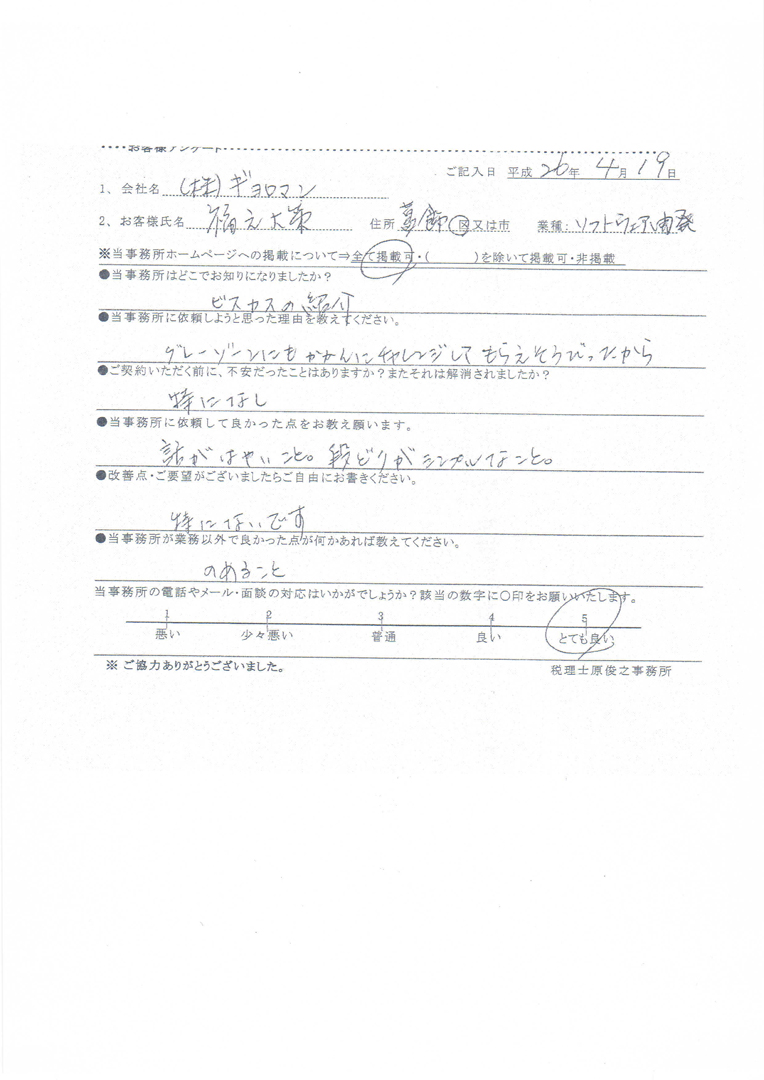 お客様アンケート
ご記入日 平成 26年 4月 19日
1、会社名 (株)ギョロマン
2、お客様氏名 福元大策 住所 葛飾 区又は市 業種: ソフトウェア開発
※当事務所ホームページへの掲載について⇒全て掲載可・( )を除いて掲載可・非掲載
●当事務所はどこでお知りになりましたか?
ビスカスの紹介
●当事務所に依頼しようと思った理由を教えてください。
グレーゾーンにもかかんにチャレンジしてもらえそうだったから
●ご契約いただく前に、不安だったことはありますか?またそれは解消されましたか?
特になし
●当事務所に依頼して良かった点をお教え願います。
話がはやいこと。段どりがシンプルなこと。
●改善点・ご要望がございましたらご自由にお書きください。
特にないです
●当事務所が業務以外で良かった点が何かあれば教えてください。
のあること
当事務所の電話やメール・面談の対応はいかがでしょうか?該当の数字に〇印をお願いいたします。
1 2 3 4 5
悪い 少々悪い 普通 良い とても良い
※ ご協力ありがとうございました。
税理士原俊之事務所